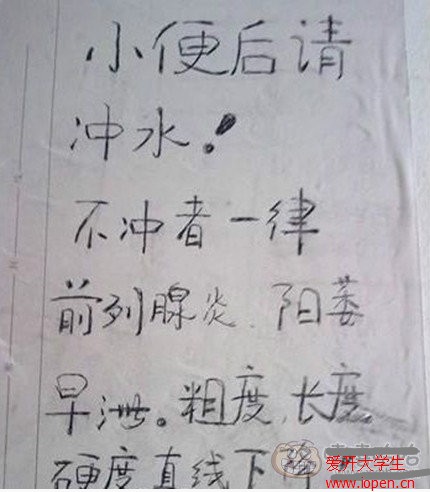 小便后请
冲水!
不冲者一律
前列腺炎、阳萎
早泄。粗度、长度
硬度直线下降
爱开大学生
www.lopen.cn